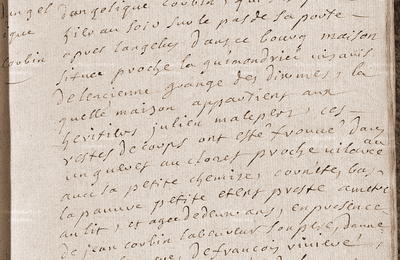 d'angelique corbin,
hier au soir sur le pas de sa porte
apres l'angelus dans ce bourg maison
située proche la quimondrier visavis
de l'encienne grange des dixmes, la
quelle maison appartient aux
heritiers julien malepert, ces
restes de corps ont esté trouvé dans
un au closet proche
avec sa petite chemise, cornète, bas,
la pauvre petite etent preste a metre
au lit, et agee de deux ans, en presence
de jean corbin laboureur son pere,
de françois riviere,
corbin